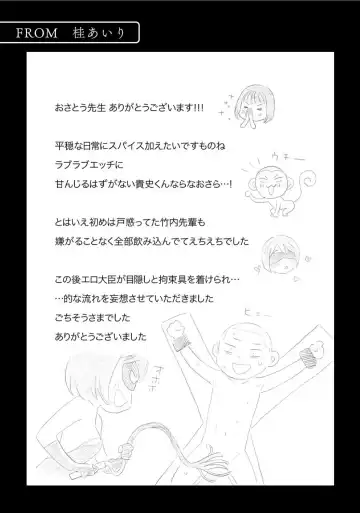 FROM 桂あいり
おさとう先生 ありがとうございます!!!
平穏な日常にスパイス加えたいですものね
ラブラブエッチに
甘んじるはずがない貴史くんならなおさら…!
ウキー
とはいえ初めは戸惑ってた竹内先輩も
嫌がることなく全部飲み込んでてえちえちでした
この後エロ大臣が目隠しと拘束具を着けられ…
…的な流れを妄想させていただきました
ごちそうさまでした
ありがとうございました
ヒュー
オホホ